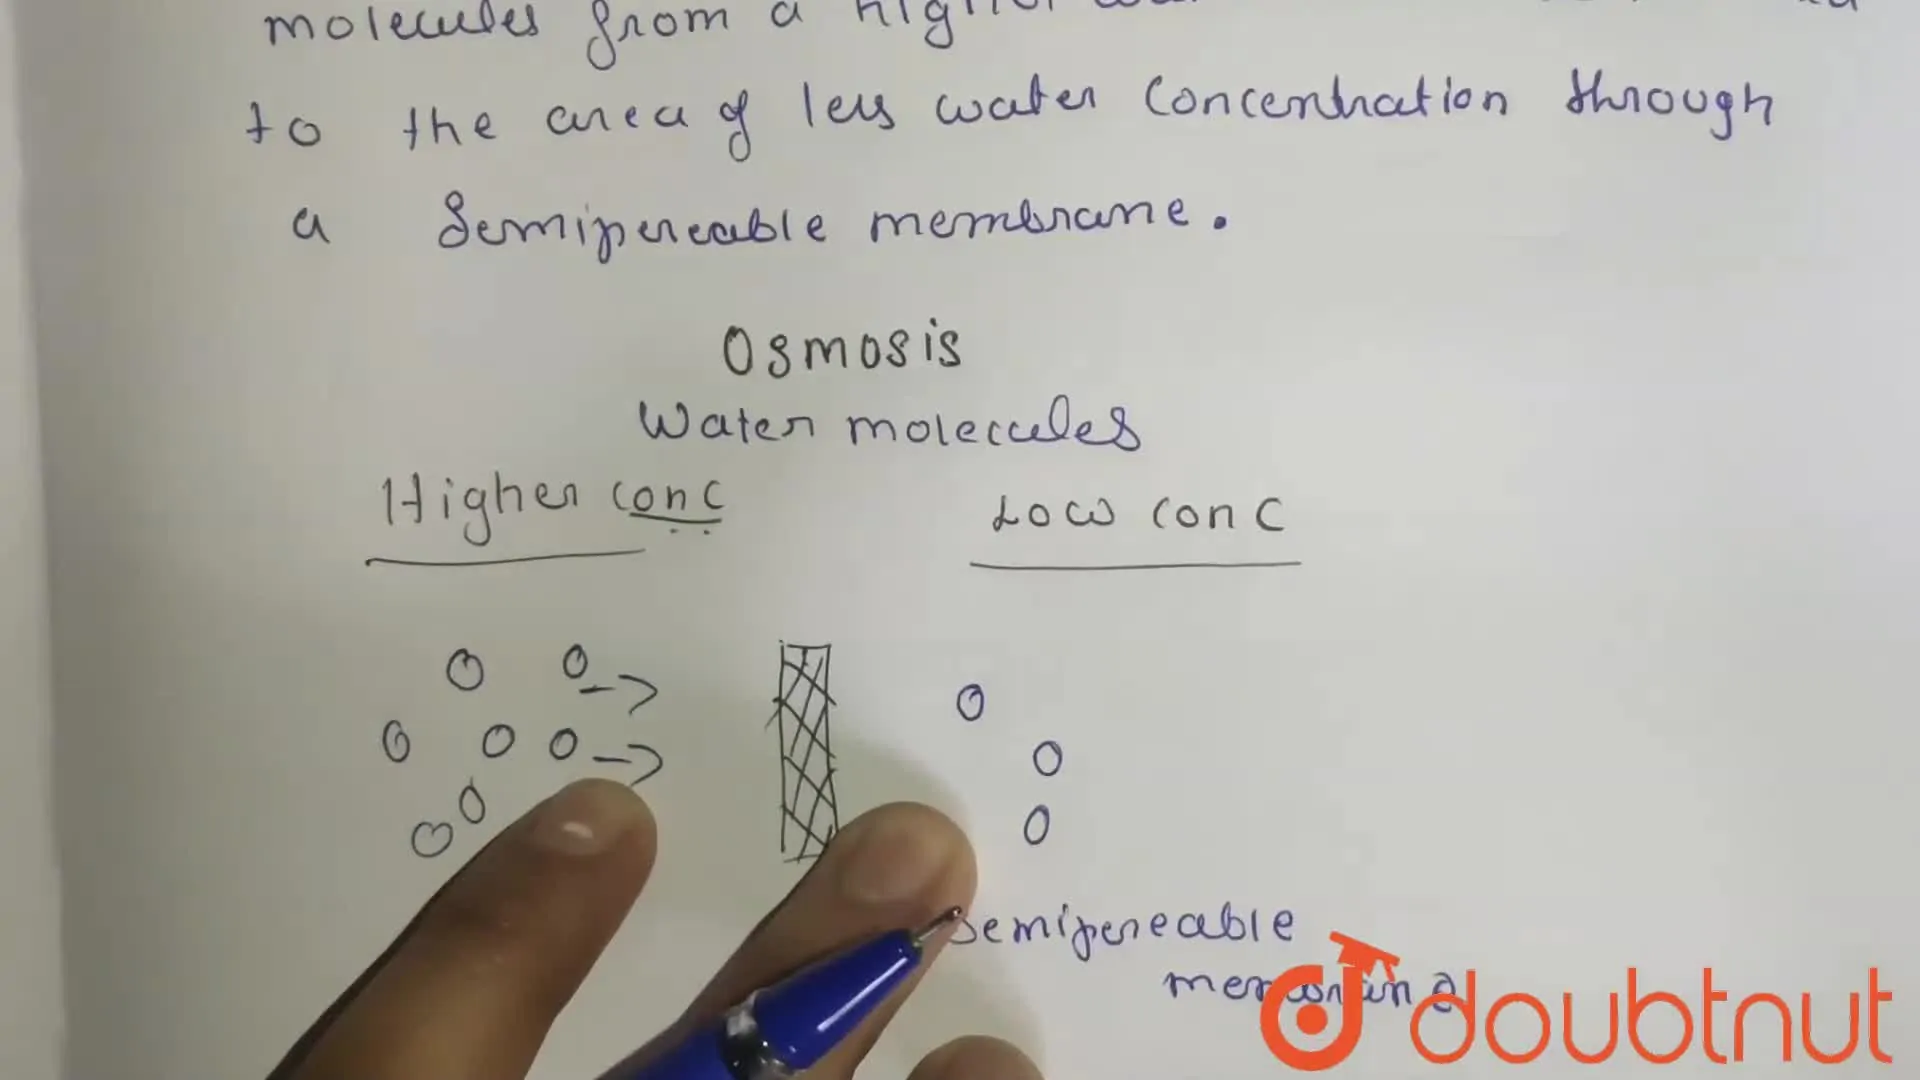 molecules from a
to the area of less water concentration through
a Semipereable membrane.
Osmosis
Water molecules
Higher conc
Low conc
semipereable
membrane
doubtnut